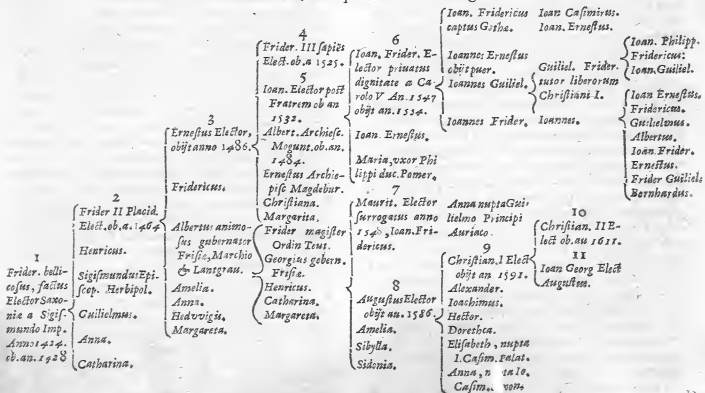 1
Frider. belli-
cosus, factus
Elector Saxo-
nia a Sigis-
mundo Imp.
Anno 1424.
ob. an. 1428
2
Frider II Placid.
Elect. ob. a. 1464
Henricus.
Sigismundus Epi-
scop. Herbipol.
Guilielmus.
Anna.
Catharina.
3
Ernestus Elector,
obijt anno 1486.
Fridericus.
Albertus animo-
sus gubernator
Frisiæ, Marchio
& Lantgrau.
Amelia.
Anna.
Hedvvigis.
Margareta.
4
Frider. III sapiẽs
Elect. ob. a 1525.
5
Ioan. Elector post
Fratrem ob an
1532.
Albert. Archiesc.
Mogunt. ob. an.
1484.
Ernestus Archie-
pisc Magdebur.
Christiana.
Margarita.
Frider magister
Ordin Teut.
Georgius gebern.
Frisiæ.
Henricus.
Catharina.
Margaresa.
6
Ioan, Frider. E-
lector priuatus
dignitate a Ca-
rolo V An. 1547
obijt an. 1554.
Ioan. Ernestus.
Maria, vxor Phi
lippi duc. Pomer.
7
Maurit. Elector
surrogatus anno
1548, Ioan. Fri-
dericus.
8
Augustus Elector
obijt au. 1586.
Amelia.
Sibylla.
Sidonia.
Ioan. Fridericus
captus Gothæ.
Ioannes Ernestus
obijt puer.
Ioannes Guiliel.
Ioannes Frider.
Anna nupta Gui-
lielmo Principi
Auriaco.
9
Christian. I Elect
obijt an 1591.
Alexander.
Ioachimus.
Hector.
Dorethca.
Elisabeth, nupta
I. Casim. Palat.
Anna, nupta Io.
Casim.
Ioan Casimirus.
Ioan. Ernestus.
Guiliel. Frider.
tutor liberorum
Christiani I.
Ioannes.
10
Christian. II E-
lect ob. au 1611.
11
Ioan Georg Elect
Augustus.
Ioan. Philipp.
Fridericus:
Ioan. Guiliel.
Ioan Ernestus.
Fridericus.
Guilielmus.
Albertus.
Ioan. Frider.
Ernestus.
Frider Guiliels
Bernhardus.